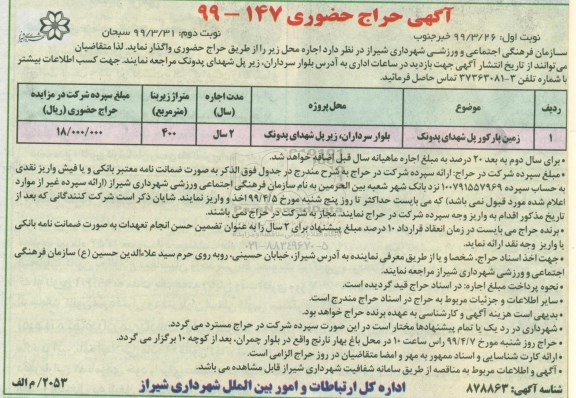 آگهی حراج حضوری ۱۴۷ - ۹۹
نوبت اول: ۹۹/۳/۲۶ خبرجنوب نوبت دوم: ۹۹/۳/۳۱ سبحان
سازمان فرهنگی اجتماعی و ورزشی شهرداری شیراز در نظر دارد اجاره محل زیر را از طریق حراج حضوری واگذار نماید. لذا متقاضیان
می‌توانند از تاریخ انتشار آگهی جهت بازدید در ساعات اداری به آدرس بلوار سرداران، زیر پل شهدای پدونک مراجعه نمایند. جهت کسب اطلاعات بیشتر
با شماره تلفن ۳-۳۷۳۶۳۰۸۱ تماس حاصل فرمائید.
ردیف موضوع محل پروژه مدت اجاره (سال) متراژ زیربنا (مترمربع) مبلغ سپرده شرکت در مزایده حراج حضوری (ریال)
۱ زمین پارکور پل شهدای پدونک بلوار سرداران، زیر پل شهدای پدونک ۲ سال ۴۰۰ ۱۸/۰۰۰/۰۰۰
• برای سال دوم به بعد ۲۰ درصد به مبلغ اجاره ماهیانه سال قبل اضافه خواهد شد.
• مبلغ سپرده شرکت در حراج: ارائه سپرده شرکت در حراج به شرح مندرج در جدول فوق الذکر به صورت ضمانت نامه معتبر بانکی و یا فیش واریز نقدی
به حساب سپرده ۱۰۰۷۹۱۵۵۷۹۶۹ نزد بانک شهر شعبه بین الحرمین به نام سازمان فرهنگی اجتماعی ورزشی شهرداری شیراز (ارائه سپرده غیر از موارد
اعلام شده مورد قبول نمی باشد) که می بایست حداکثر تا روز پنج شنبه مورخ ۹۹/۴/۵ اخذ و واریز نمایند. شایان ذکر است شرکت کنندگانی که بعد از
تاریخ مذکور اقدام به واریز وجه سپرده شرکت در حراج نمایند، مجاز به شرکت در حراج نمی باشند.
• برنده حراج می بایست در زمان انعقاد قرارداد ۱۰ درصد مبلغ پیشنهاد برای ۲ سال را به عنوان تضمین حسن انجام تعهدات به صورت ضمانت نامه بانکی
یا واریز وجه نقد ارائه نماید.
• جهت اخذ اسناد حراج، شخصا و یا از طریق معرفی نماینده به آدرس شیراز، خیابان حسینی، روبه روی حرم سید علاءالدین حسین (ع) سازمان فرهنگی
اجتماعی و ورزشی شهرداری شیراز مراجعه نمایند.
• نحوه پرداخت مبلغ اجاره: در اسناد حراج قید گردیده است.
• سایر اطلاعات و جزئیات مربوط به حراج در اسناد حراج مندرج است.
• بدیهی است هزینه آگهی و کارشناسی به عهده برنده حراج خواهد بود.
• شهرداری در رد یک یا تمام پیشنهادها مختار است در این صورت سپرده شرکت در حراج مسترد می گردد.
• حراج روز شنبه مورخ ۹۹/۴/۷ راس ساعت ۱۰ در محل باغ بهار نارنج واقع در بلوار چمران، بعد از کوچه ۱۰ برگزار می گردد.
• ارائه کارت شناسایی و اسناد ممهور به مهر و امضا متقاضیان در روز حراج الزامی است.
• آگهی و اطلاعات مربوط به مناقصه از طریق سامانه شفافیت شهرداری شیراز قابل مشاهده می باشد.
شناسه آگهی: ۸۷۸۸۶۳ اداره کل ارتباطات و امور بین الملل شهرداری شیراز ۲۰۵۳/ م الف